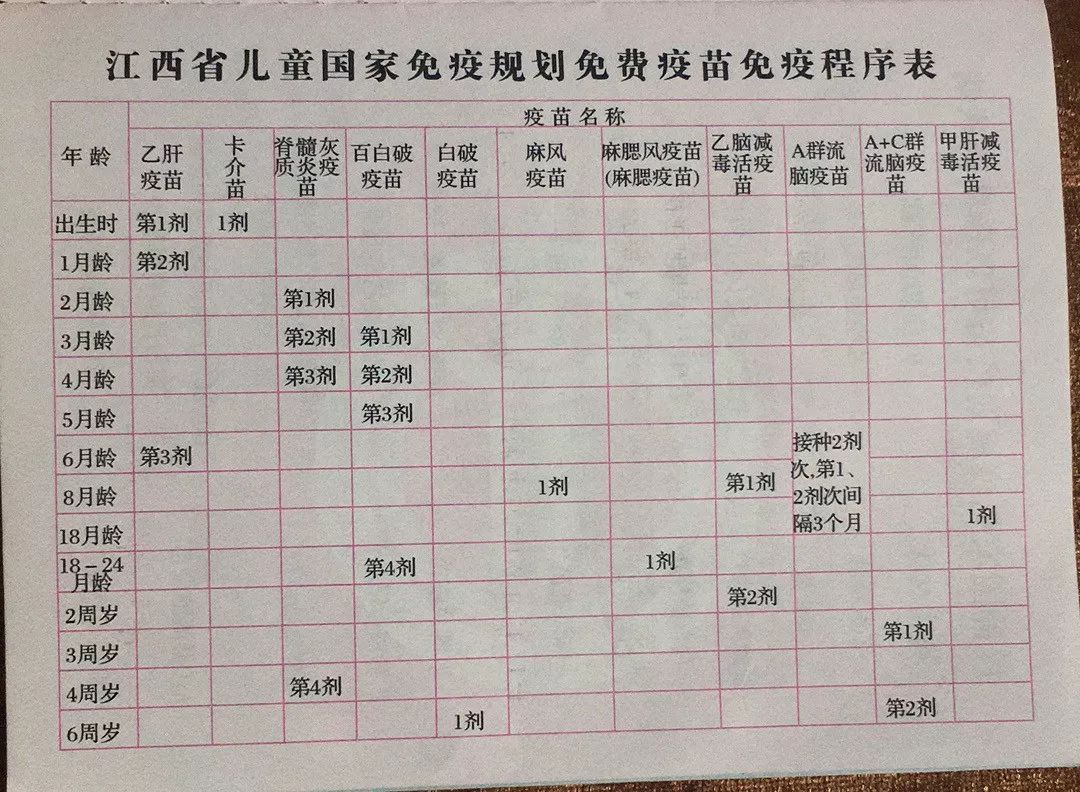 江西省儿童国家免疫规划免费疫苗免疫程序表
年龄 疫苗名称
乙肝疫苗 卡介苗 脊髓灰质炎疫苗 百白破疫苗 白破疫苗 麻风疫苗 麻腮风疫苗(麻腮疫苗) 乙脑减毒活疫苗 A群流脑疫苗 A+C群流脑疫苗 甲肝减毒活疫苗
出生时 第1剂 1剂
1月龄 第2剂
2月龄 第1剂
3月龄 第2剂 第1剂
4月龄 第3剂 第2剂
5月龄 第3剂
6月龄 第3剂 接种2剂次,第1、2剂次间隔3个月
8月龄 1剂 第1剂
18月龄 1剂
18-24月龄 第4剂 1剂
2周岁 第2剂
3周岁 第1剂
4周岁 第4剂
6周岁 1剂 第2剂